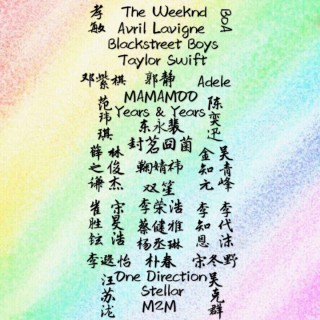 孝敏 The Weeknd BoA
Avril Lavigne
Blackstreet Boys
Taylor Swift
邓紫棋 郭静 Adele
范玮琪 MAMAMOO 陈奕迅
Years & Years
东永裴
封茗囧菌
薛之谦 林俊杰 鞠婧祎 金知元 吴青峰
双笙
崔胜铉 宗旻浩 李荣浩 李知恩 李代沫
蔡健雅
杨丞琳
李遐怡 朴春 宗冬野
汪苏泷 One Direction 吴克群
Stellar
M2M